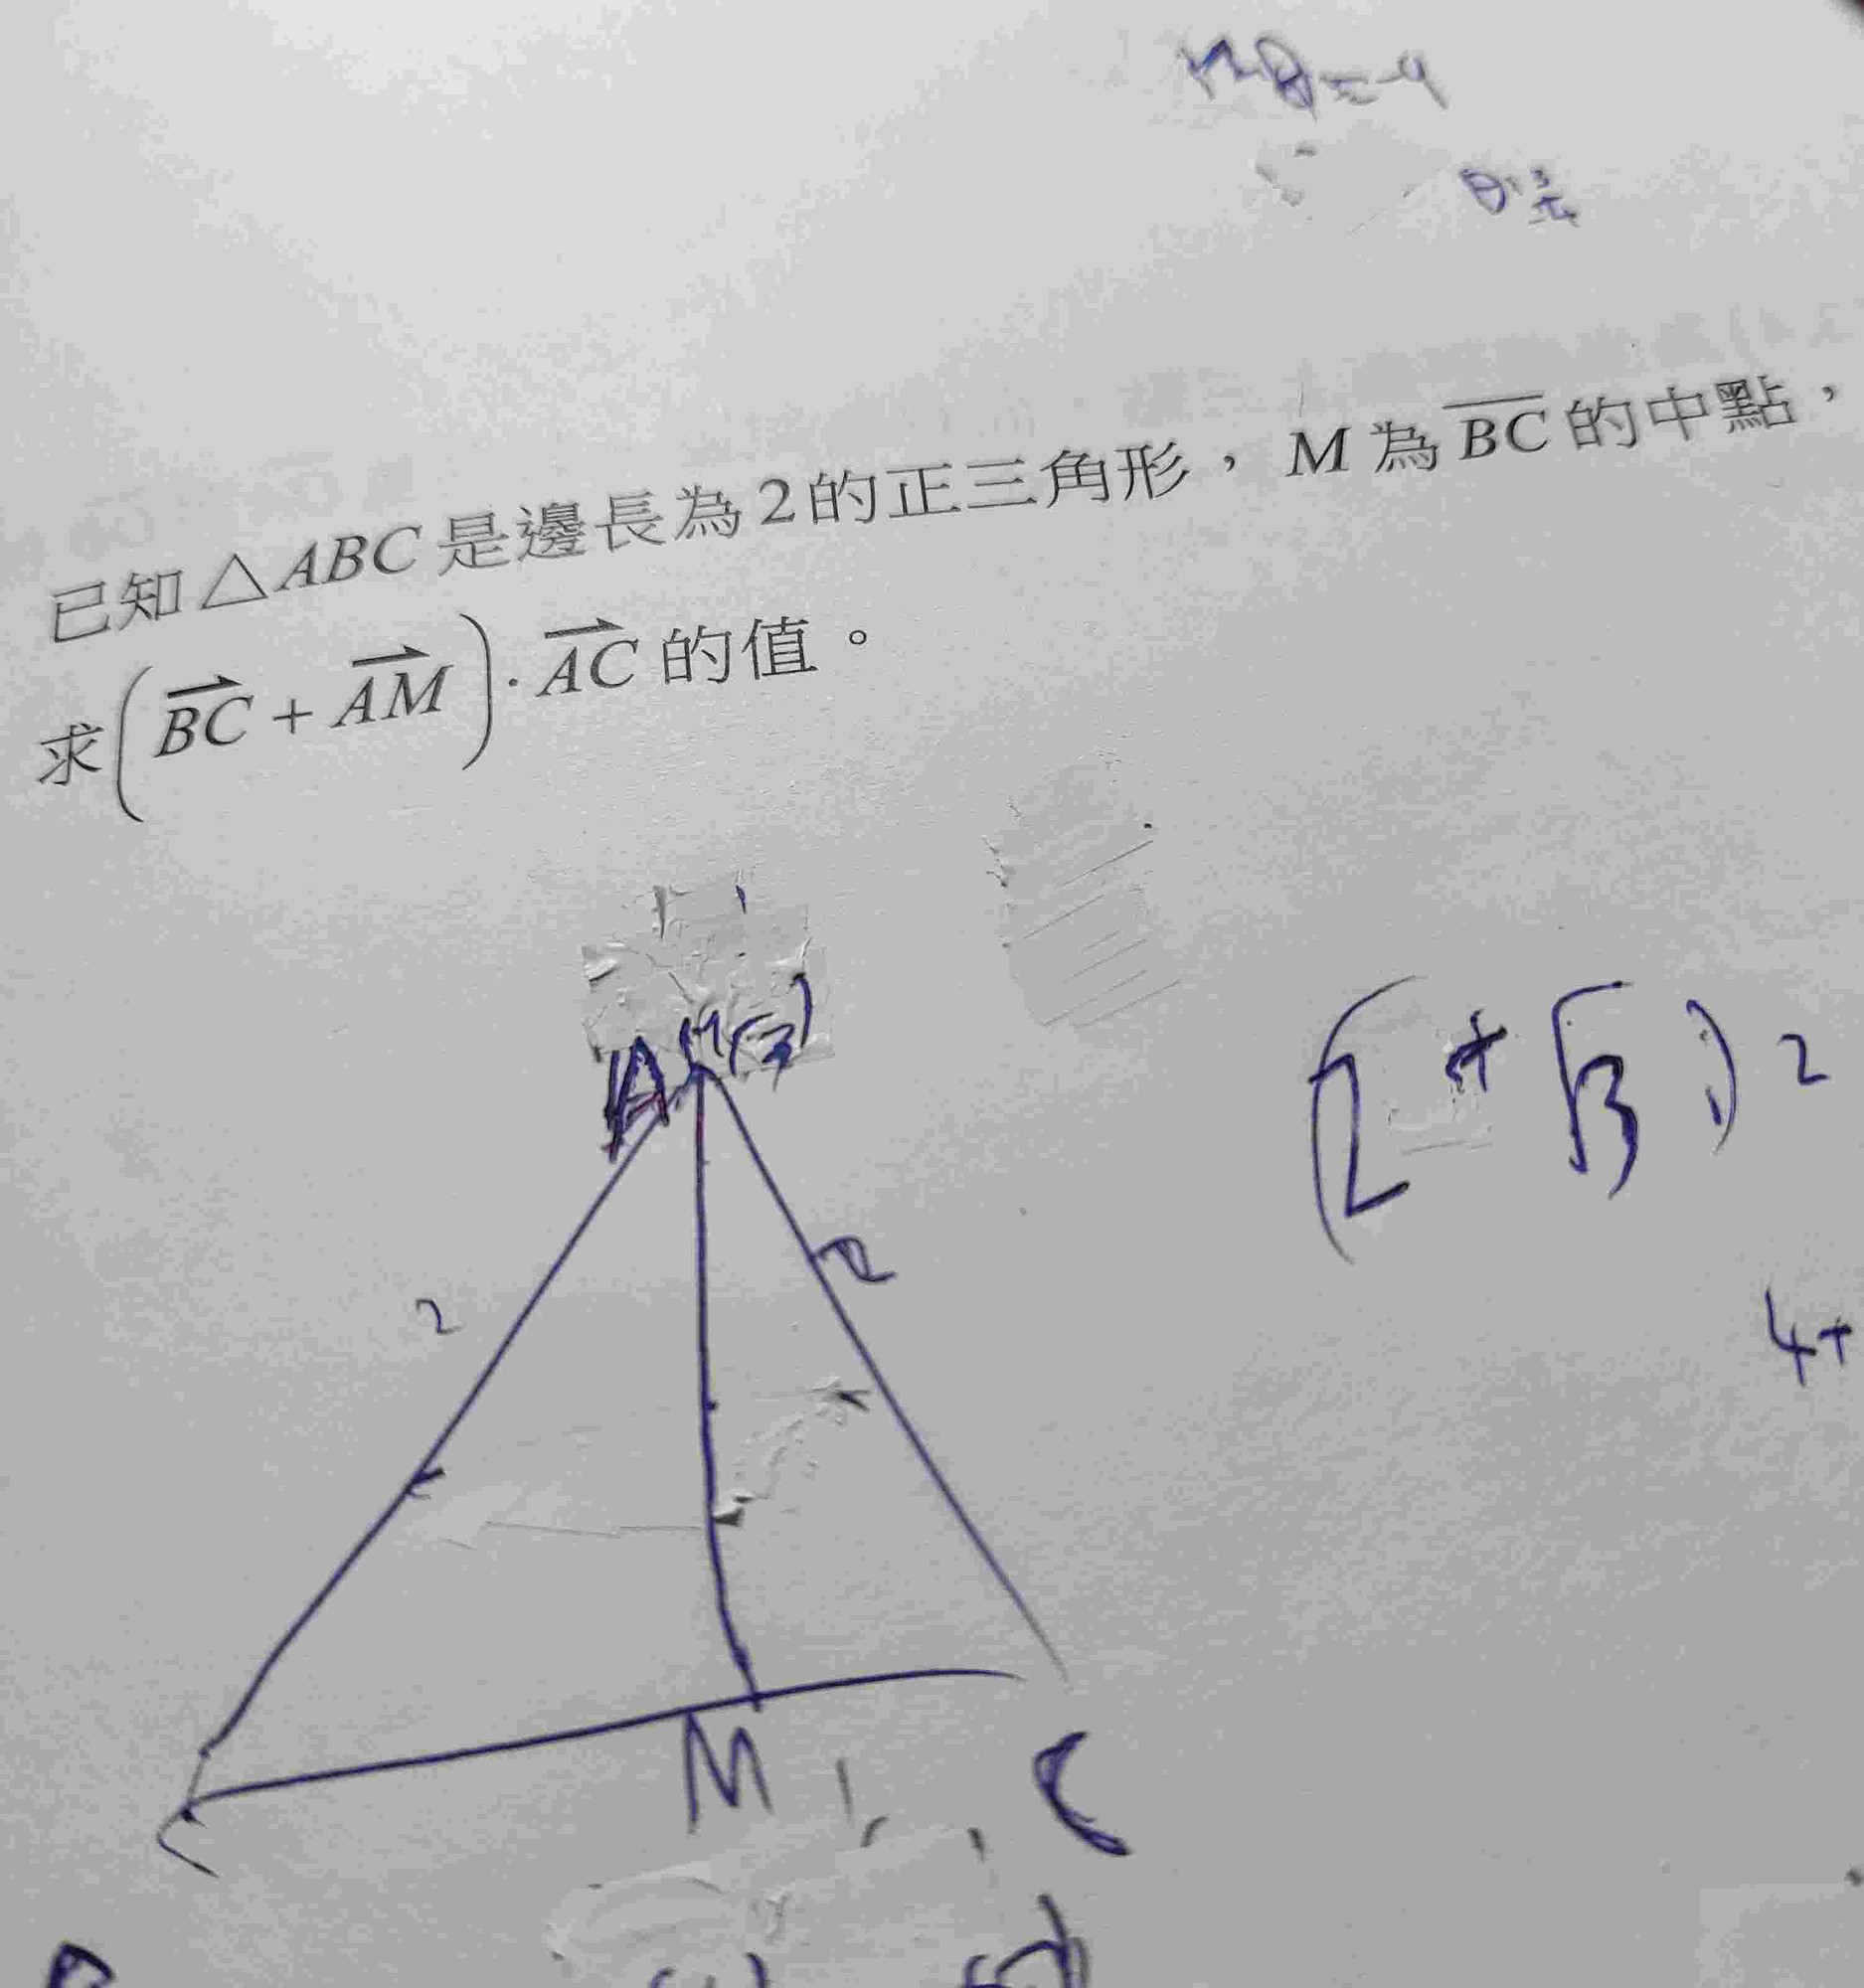 θ=
已知△ABC 是邊長為 2 的正三角形， M 為 BC 的中點，
求(BC + AM)·AC 的值。
A
(2 + √3) 2
2
2
4+
M
C